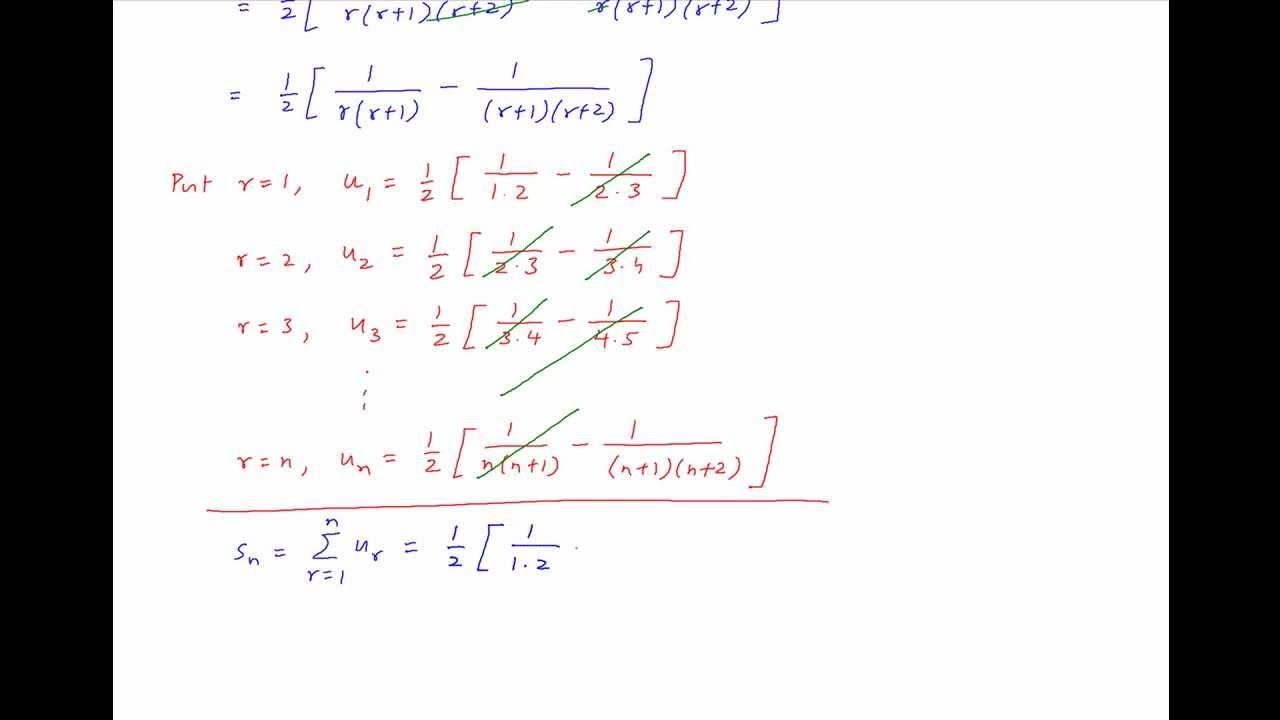 = 1/2 [ r(r+1)(r+2) r(r+1)(r+2) ]
= 1/2 [ 1/r(r+1) − 1/(r+1)(r+2) ]
Put r=1, u₁ = 1/2 [ 1/1.2 − 1/2·3 ]
r=2, u₂ = 1/2 [ 1/2·3 − 1/3·4 ]
r=3, u₃ = 1/2 [ 1/3·4 − 1/4·5 ]
⋮
r=n, uₙ = 1/2 [ 1/n(n+1) − 1/(n+1)(n+2) ]
Sₙ = ∑ₙ r=1 uᵣ = 1/2 [ 1/1.2